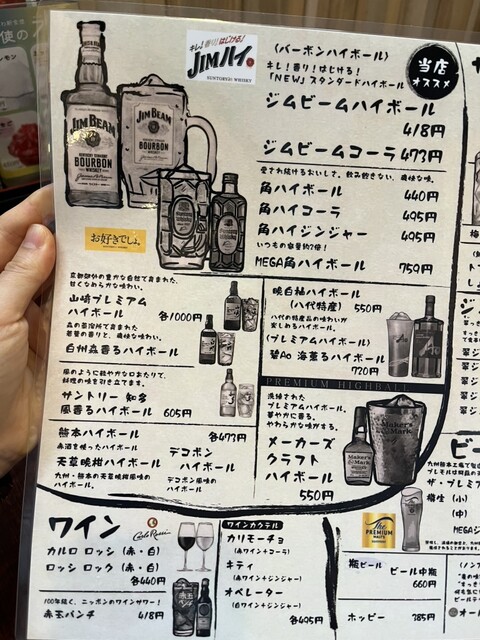 キレ!香り!はじける!
JIMハイ
SUNTORY WHISKY
(バーボンハイボール)
キレ!香り!はじける!
「NEW」スタンダードハイボール
当店
オススメ
ジムビームハイボール
418円
ジムビームコーラ 473円
JIM BEAM
BOURBON
JIM BEAM
BOURBON
お好きでしょ。
愛され続けるおいしさ。飲み飽きない、爽快な味。
角ハイボール 440円
角ハイコーラ 495円
角ハイジンジャー 495円
いつもの容量約2倍!
MEGA角ハイボール 759円
京都郊外の豊かな自然で育まれた、
甘くなめらかな味わい。
山崎プレミアム
ハイボール 各1000円
森の蒸溜所で育まれた
若葉の香りと、爽快な味わい。
白州森香るハイボール
風のように軽やかな口あたりで、
料理の味を引き立てます。
サントリー 知多
風香るハイボール 605円
晩白柚ハイボール
(八代特産) 550円
八代の特産品の味わいが
楽しめるハイボール。
(プレミアムハイボール)
碧Ao 海薫るハイボール
720円
PREMIUM HIGHBALL
洗練された
プレミアムハイボール。
華やかに香る、
やわらかな味がする。
メーカーズ
クラフト
ハイボール
550円
Maker's Mark
Maker's Mark
熊本ハイボール 各473円
赤酒を使ったハイボール
天草晩柑ハイボール
九州・熊本の天草晩柑風味の
ハイボール。
デコポン
ハイボール
デコポン風味の
ハイボール。
ワイン
Carlo Rossi
カルロ ロッシ (赤・白)
ロッシ ロック (赤・白)
各440円
100年続く、ニッポンのワインサワー!
赤玉パンチ 418円
ワインカクテル
カリモーチョ
(赤ワイン+コーラ)
キティ
(赤ワイン+ジンジャー)
オペレーター
(白ワイン+ジンジャー)
各495円
The
PREMIUM
MALTS
瓶ビール ビール中瓶
660円
ホッピー 385円
ビー
ザ・プレミア
樽生 (小)
(中)
MEGAジ